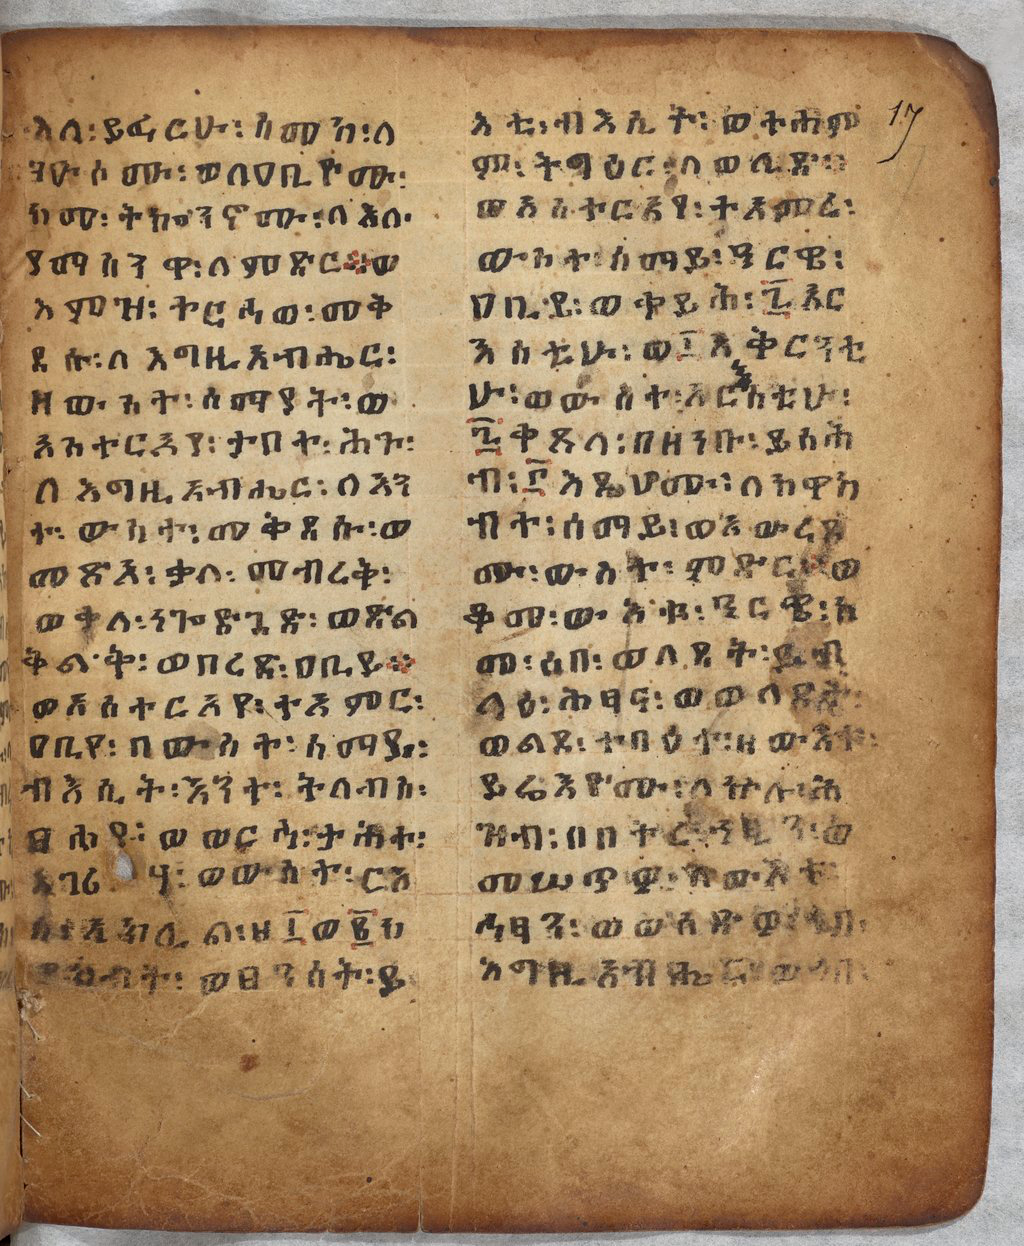 እለ፡ይፈርሁ፡ስመከ፡ለ
ንኡሳ ሙ፡ወለዐቢዮሙ፡
ከመ፡ትኰንኖሙ፡ለእለ፡
ያማስንዋ፡ለምድር፨ወ
እምዝ፡ትርኅወ፡መቅ
ደሱ፡ለእግዚአብሔር፡
ዘውስተ፡ሰማያት፡ወ
አስተርአየ፡ታቦተ፡ሕጉ፡
ለእግዚአብሔር፡ለእን
ተ፡ውስተ፡መቅደሱ፡ወ
መጽአ፡ቃለ፡መብረቅ፡
ወቃለ፡ነጐድጓድ፡ወድል
ቅልቅ፡ወበረድ፡ዐቢይ፨
ወአስተርአየ፡ተአምር፡
ዐቢየ፡በውስተ፡ሰማይ፡
ብእሲት፡እንተ፡ትለብስ፡
ፀሐየ፡ወወርኅ፡ታሕተ፡
እገሪሃ፡ወውስተ፡ርእ
ሳ፡አክሊል፡ዘ፲ወ፪ከ
ዋክብት፡ወፀንሰት፡ይ
እቲ፡ብእሲት፡ወተሐም
ም፡ትግዕር፡ለወሊድ፡
ወአስተርአየ፡ተአምረ፡
ውስተ፡ሰማይ፡ዓርዌ፡
ዐቢይ፡ወቀይሕ፡፯አር
እስቲሁ፡ወ፲አቅርንቲ
ሁ፡ወውስተ፡አርእስቲሁ፡
፯ቀጸላ፡በዘነቡ፡ይስሕ
ብ፡፫እዴሆሙ፡ለከዋክ
ብት፡ሰማይ፡ወአውረደ
ሙ፡ውስተ፡ምድር፨ወ
ቆመ፡ውእቱ፡ዓርዌ፡ከ
መ፡ሶበ፡ወለደት፡ይብ
ላዕ፡ሕፃና፡ወወለደት፡
ወልደ፡ተባዕተ፡ዘውእቱ፡
ይሬእዮሙ፡ለኵሉ፡ሕ
ዝብ፡በበትረ፡ኀፂን፡ወ
መሠጥዎ፡ለውእቱ
ሕፃን፡ወወሰድዎ፡ኀበ፡
እግዚአብሔር፡ወኀበ፡
17